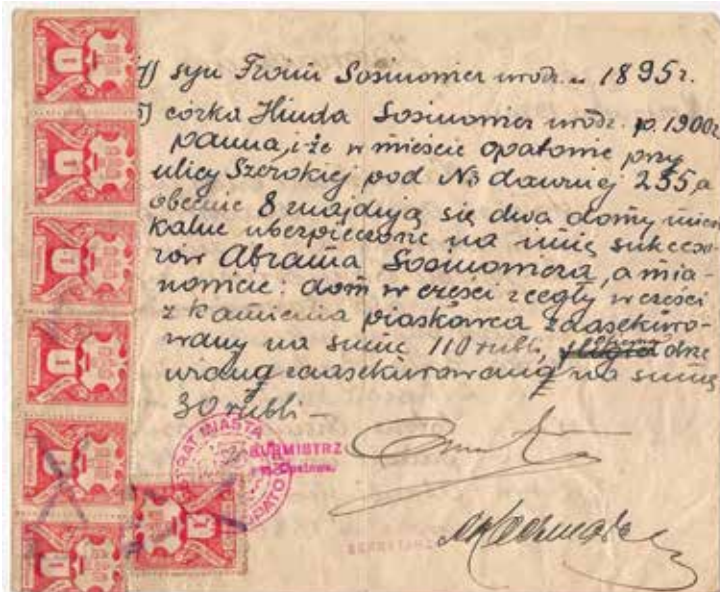 4) syn Froim Sosinowicz urodz. w 1895 r.
5) córka Hinda Sosinowicz urodz. w r. 1900
panna, i że w mieście Opatowie przy
ulicy Szerokiej pod № dawniej 255, a
obecnie 8 znajdują się dwa domy miesz
kalne ubezpieczone na imię sukceso-
rów Abrama Sosinowicza, a mia-
nowicie: dom w części z cegły w części
z kamienia piaskowca zaasekuro-
wany na sumę 110 rubli, drze
wianą zaasekurowaną na sumę
30 rubli –
BURMISTRZ
SEKRETARZ